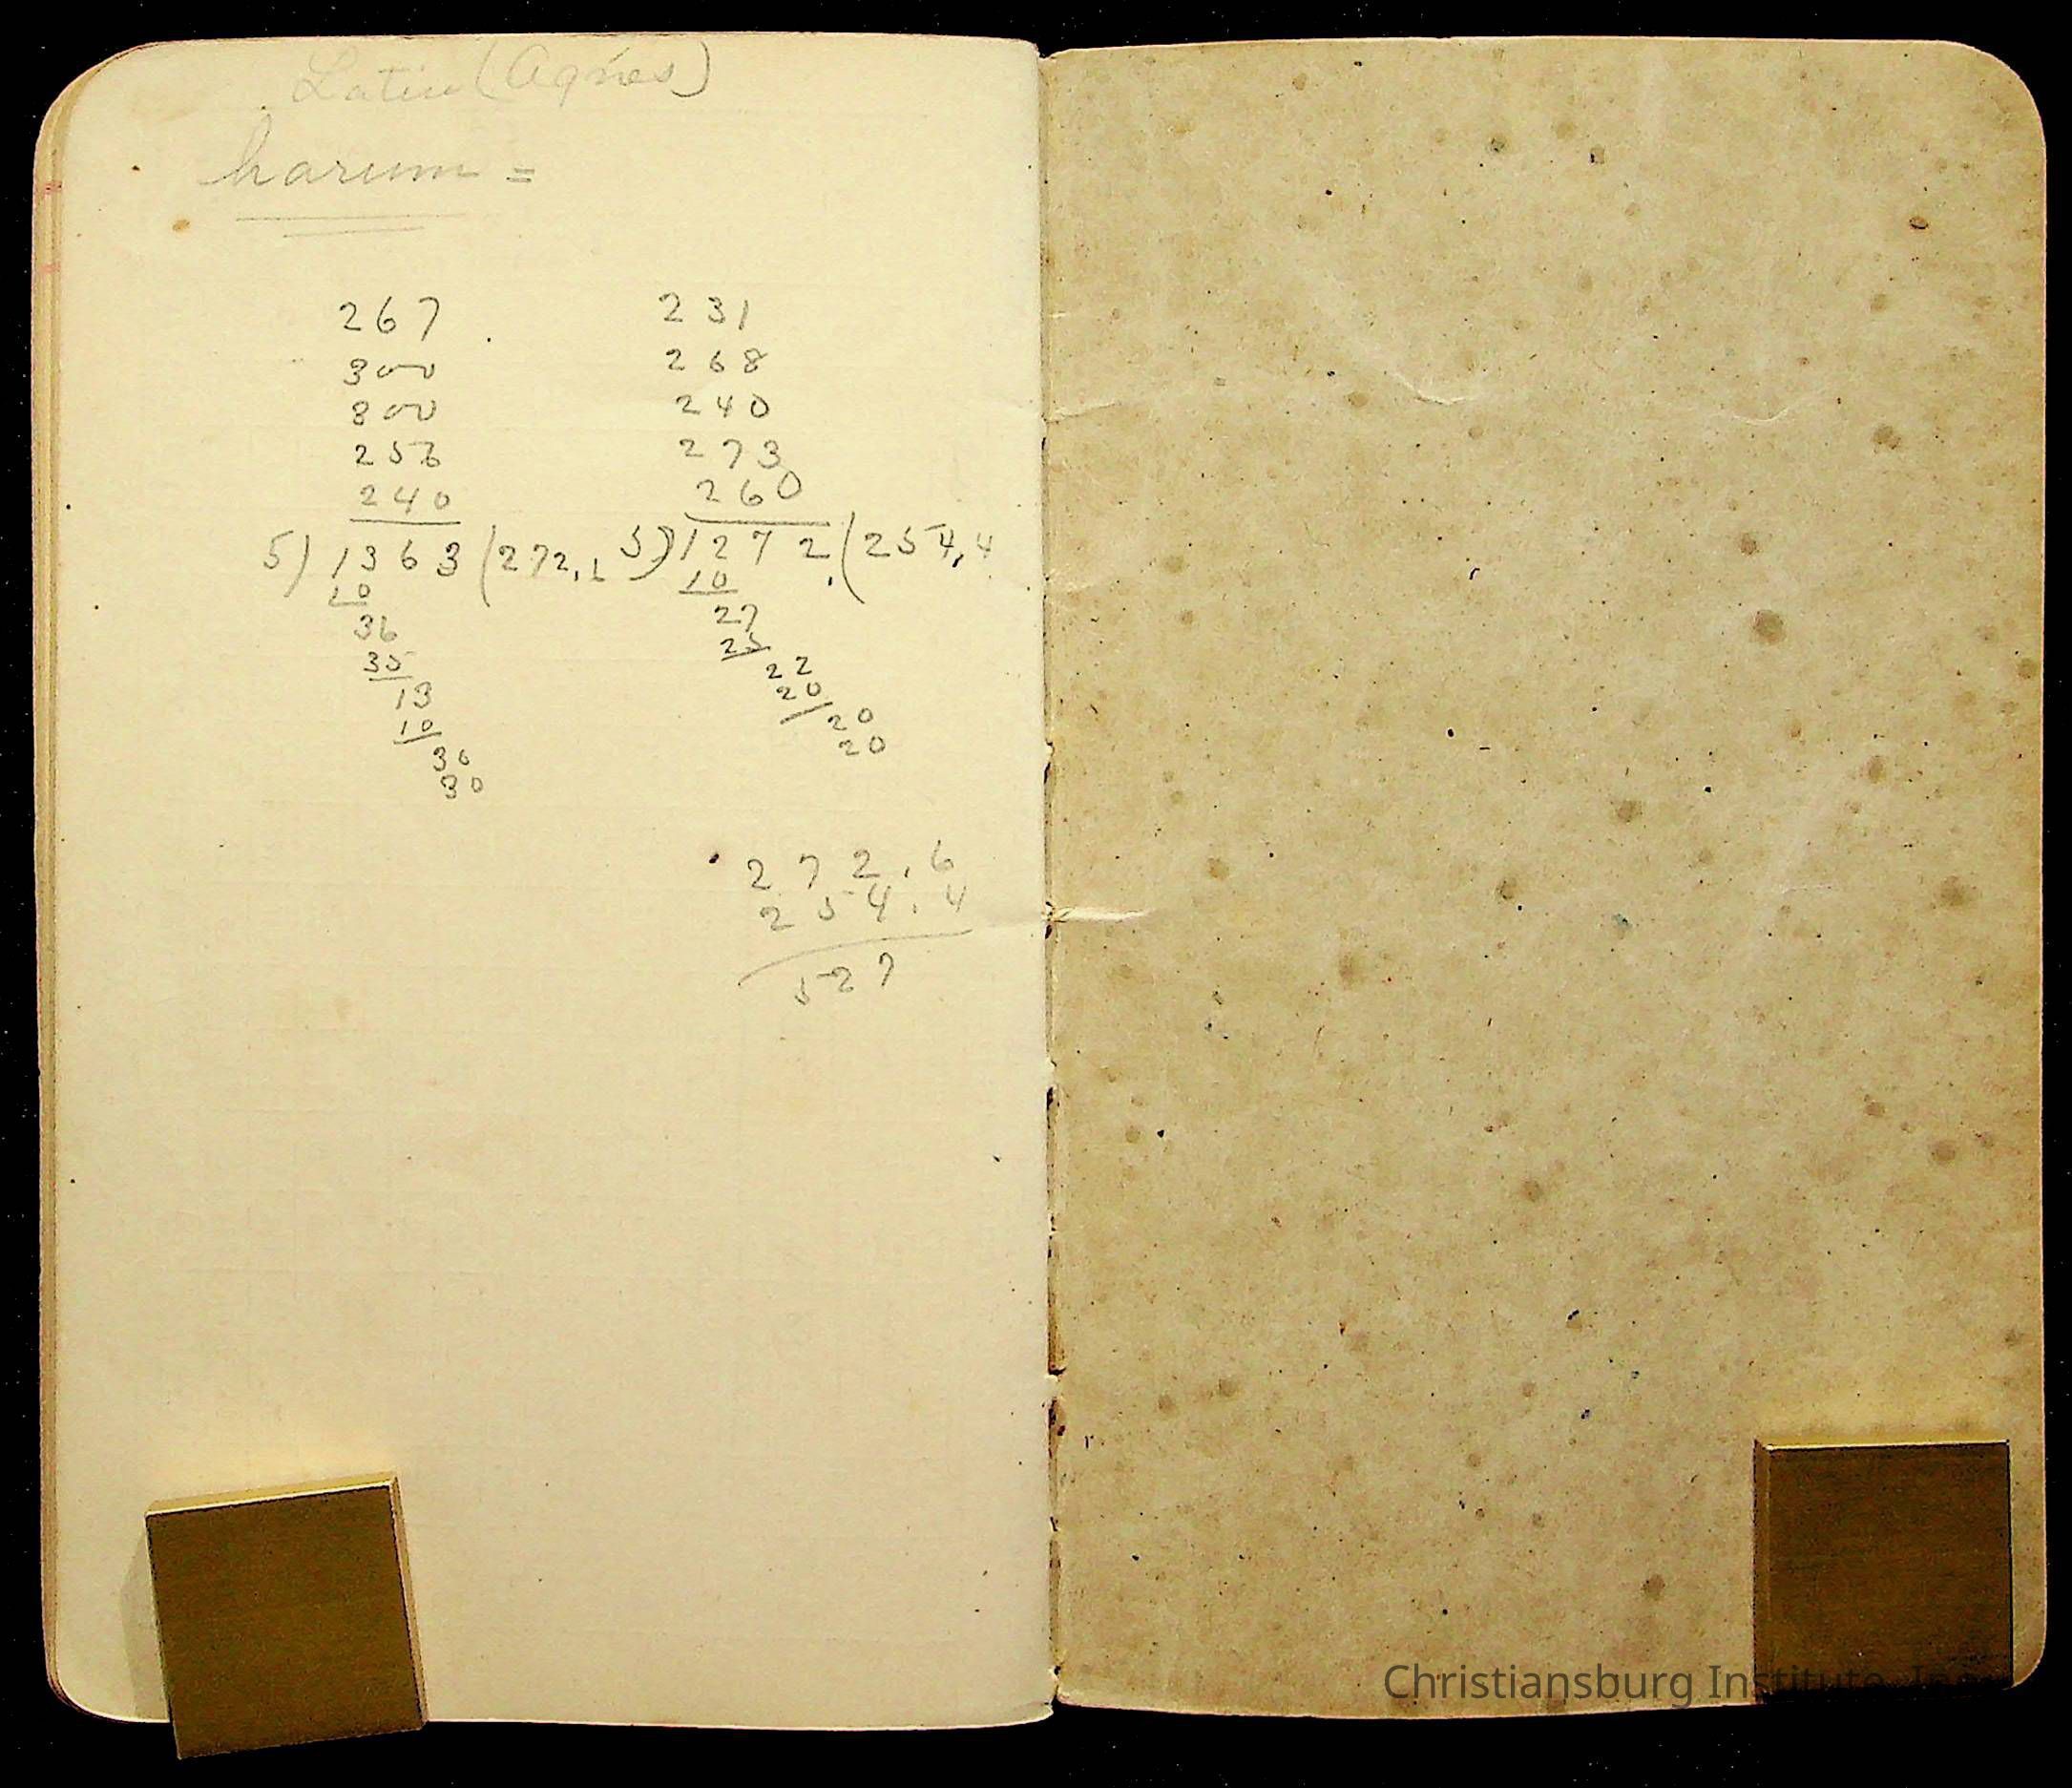 Latin (Agnes)
harum =
267
300
300
256
240
5) 1363 (272.6
10
36
35
13
10
30
30
231
268
240
273
260
5) 1272 (254.4
10
27
25
22
20
20
20
272.6
254.4
527
Christiansburg Institute, Inc.